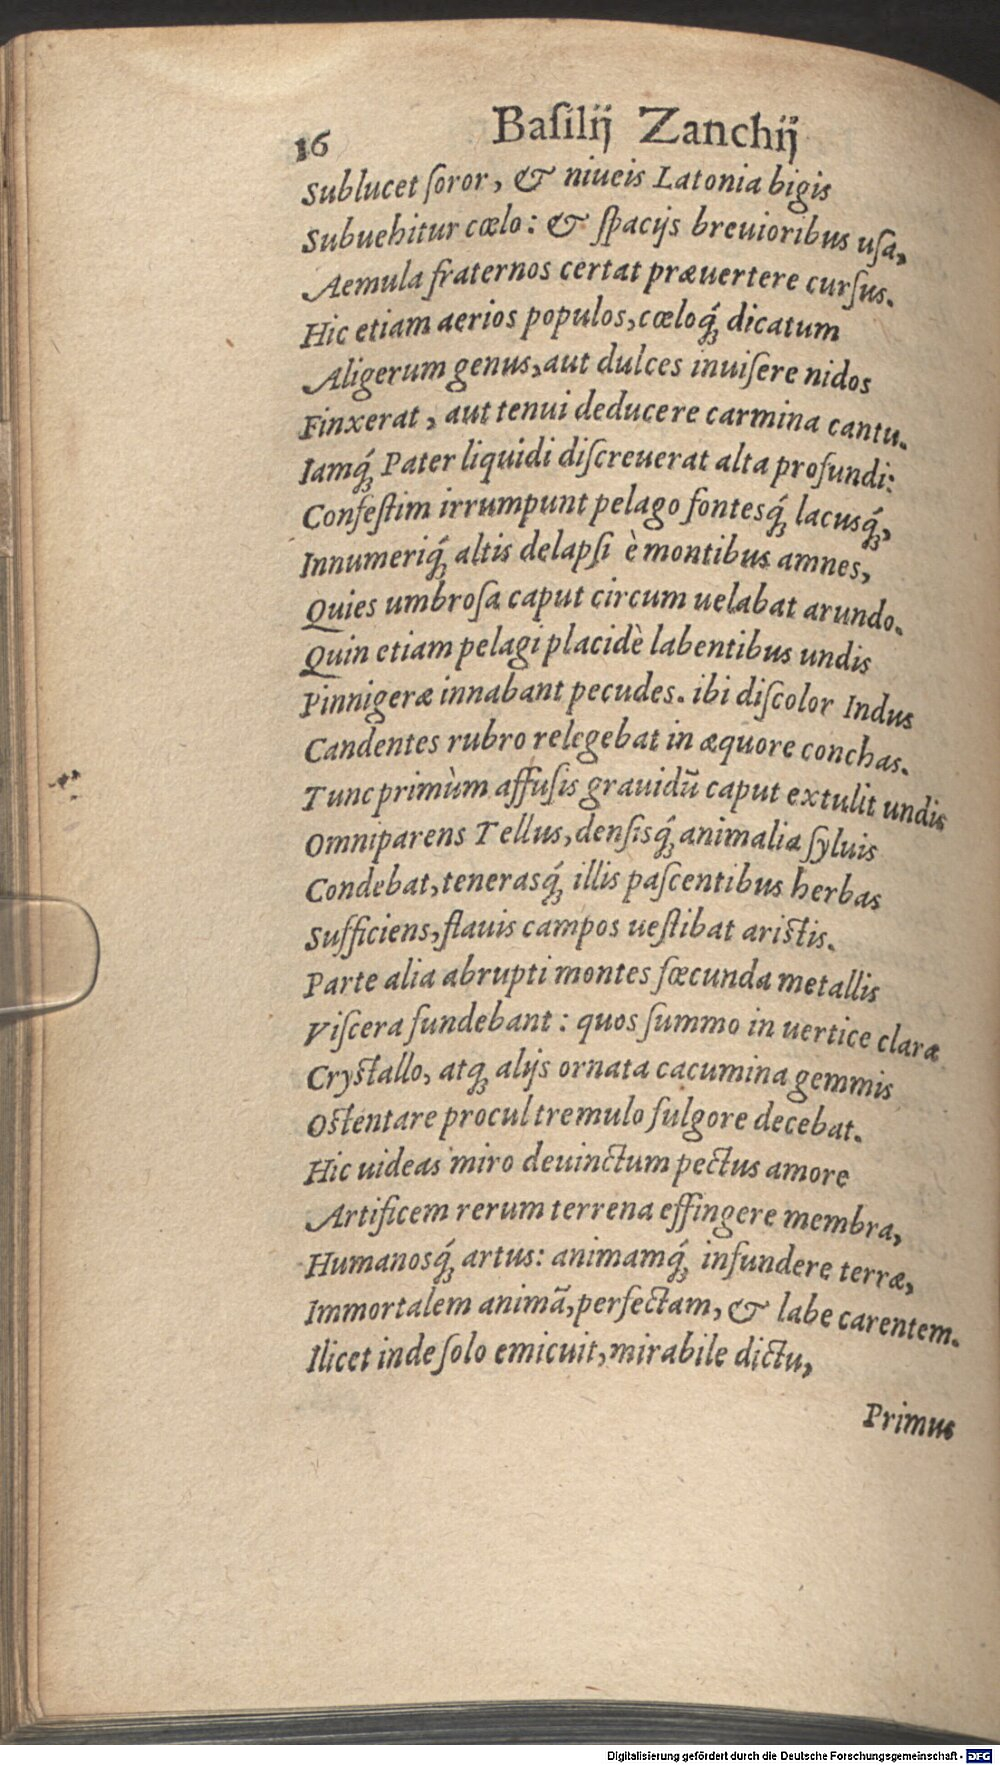 16 Baſilij Zanchij
Sublucet ſoror, & niueis Latonia bigis
Subuehitur cœlo: & ſpacijs breuioribus uſa,
Aemula fraternos certat præuertere curſus.
Hic etiam aerios populos, cœloq́; dicatum
Aligerum genus, aut dulces inuiſere nidos
Finxerat, aut tenui deducere carmina cantu.
Iamq́; Pater liquidi diſcreuerat alta profundi:
Confeſtim irrumpunt pelago fontesq́; lacusq́;,
Innumeriq́; altis delapſi è montibus amnes,
Quies umbroſa caput circum uelabat arundo.
Quin etiam pelagi placidè labentibus undis
Pinnigeræ innabant pecudes. ibi diſcolor Indus
Candentes rubro relegebat in æquore conchas.
Tunc primùm affuſis grauidū caput extulit undis
Omniparens Tellus, denſisq́; animalia ſyluis
Condebat, tenerasq́; illis paſcentibus herbas
Sufficiens, flauis campos ueſtibat ariſtis.
Parte alia abrupti montes fœcunda metallis
Viſcera fundebant: quos ſummo in uertice claræ
Cryſtallo, atq; alijs ornata cacumina gemmis
Oſtentare procul tremulo fulgore decebat.
Hic uideas miro deuinctum pectus amore
Artificem rerum terrena effingere membra,
Humanosq́; artus: animamq́; infundere terræ,
Immortalem animā, perfectam, & labe carentem.
Ilicet inde ſolo emicuit, mirabile dictu,
Primus
Digitalisierung gefördert durch die Deutsche Forschungsgemeinschaft - DFG